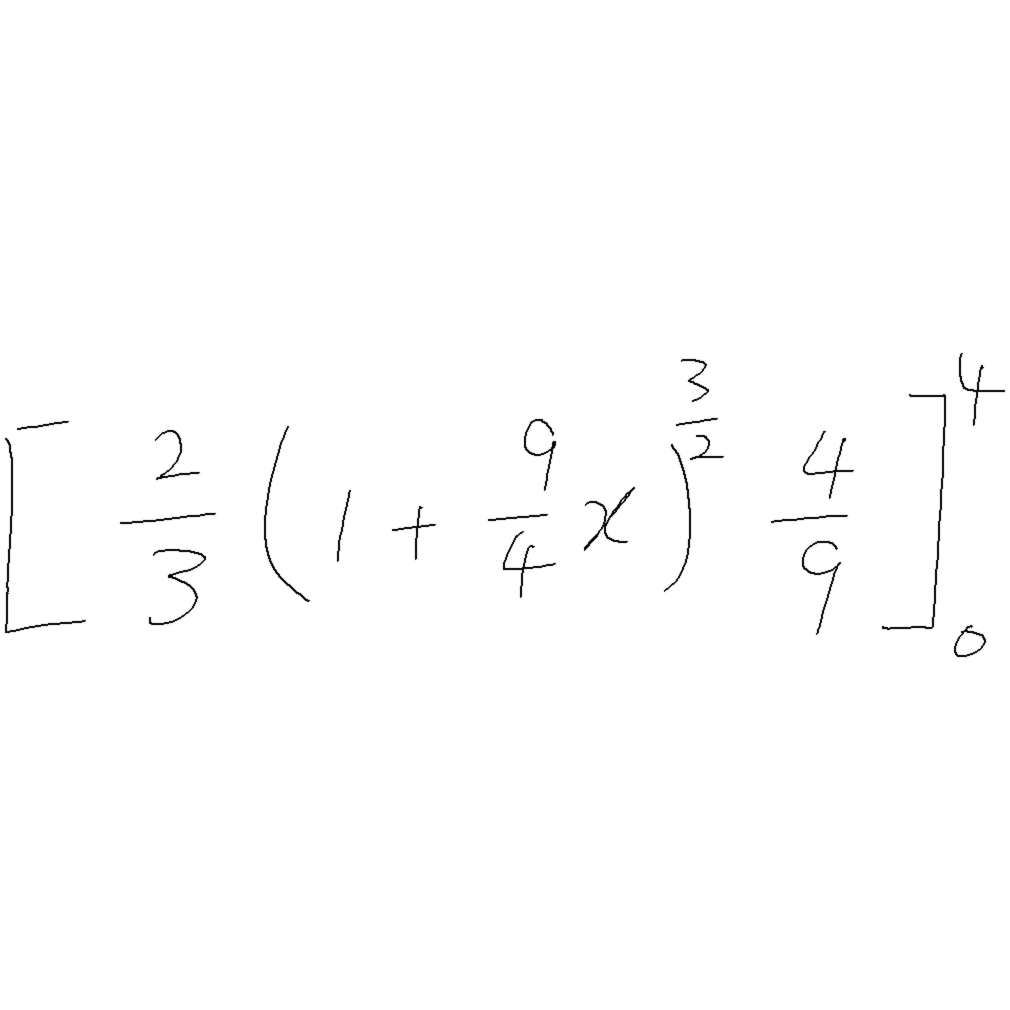 \left[ \frac{2}{3} \left( 1 + \frac{9}{4} x \right)^{\frac{3}{2}} \frac{4}{9} \right]_{0}^{4}